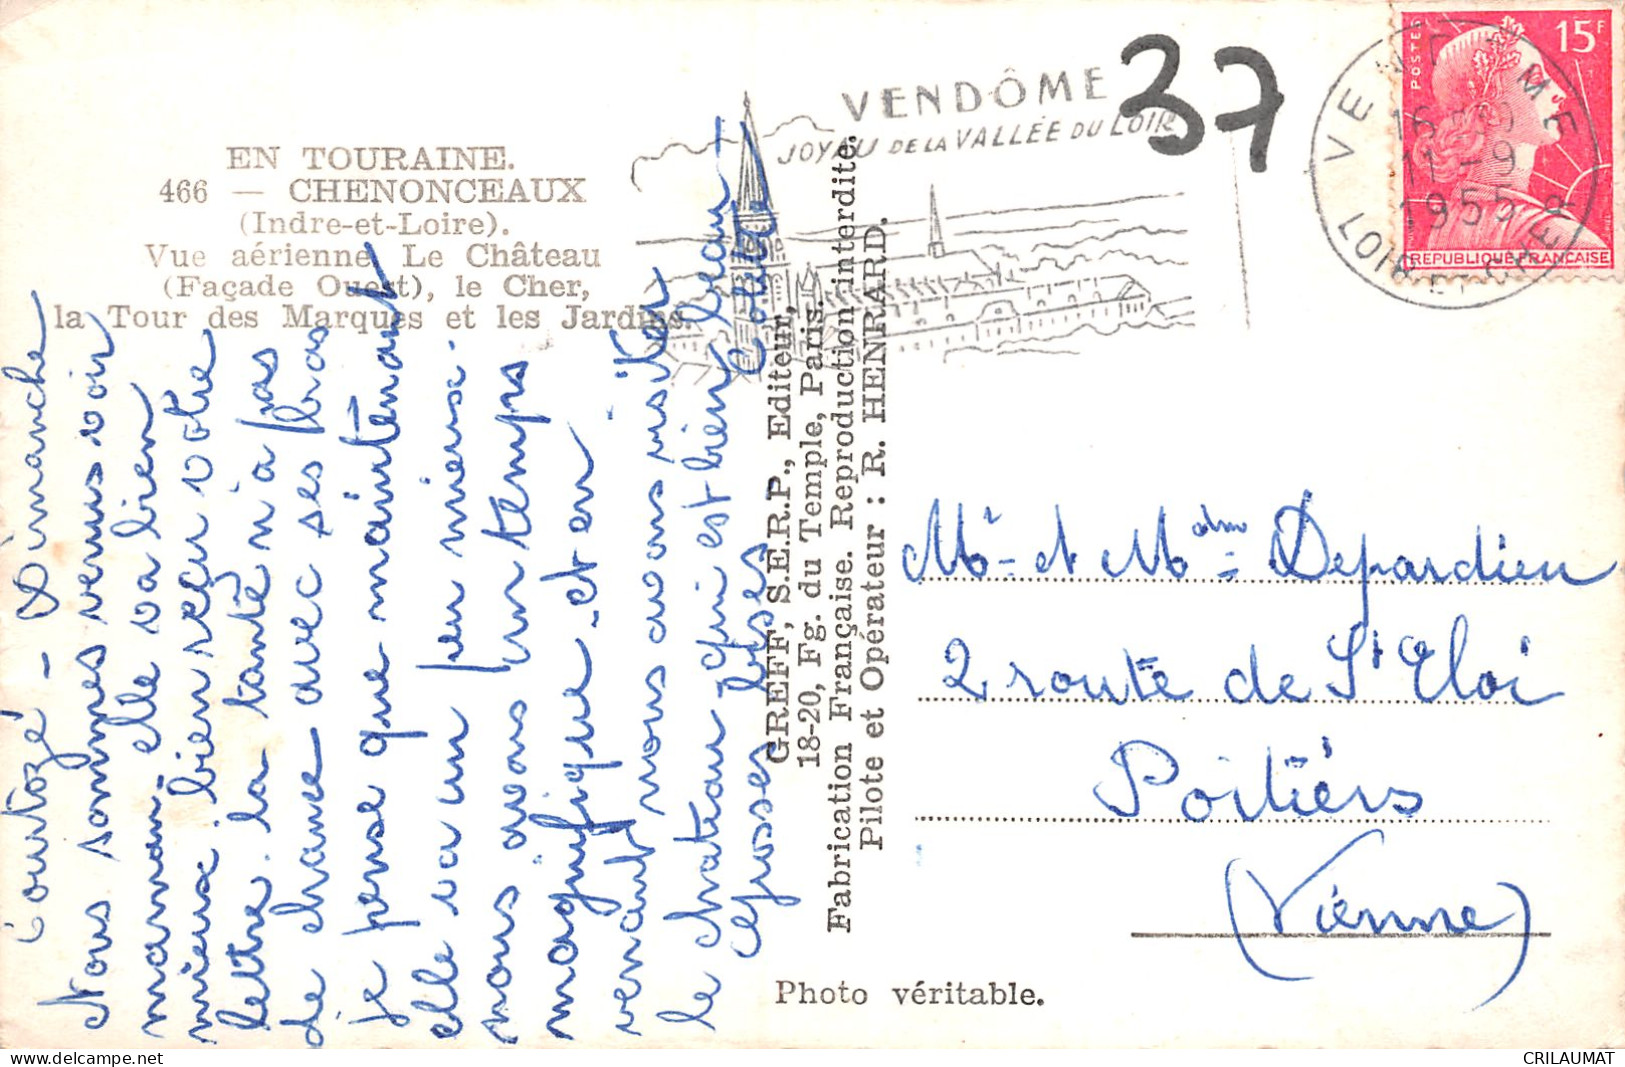 EN TOURAINE.
466 — CHENONCEAUX
(Indre-et-Loire).
Vue aérienne. Le Château
(Façade Ouest), le Cher,
la Tour des Marques et les Jardins.
VENDÔME
JOYAU DE LA VALLÉE DU LOIR
37
VENDOME
16 30
11-9
1955
LOIR ET CHER
POSTES
15F
REPUBLIQUE FRANÇAISE
Courtozé - Dimanche
Nous sommes venus voir
maman. elle va bien
mieux. bien reçu votre
lettre. la tante n'a pas
de chance avec ses bras
je pense que maintenant
elle va un peu mieux.
nous avons un temps
magnifique. et en
venant nous avons visiter
le chateau qui est bien beau
Grosses bises Colette
GREFF, S.E.R.P., Editeur,
18-20, Fg. du Temple, Paris.
Fabrication Française. Reproduction interdite.
Pilote et Opérateur : R. HENRARD.
Mr et Mdme Depardieu
2 route de St Eloi
Poitiers
(Vienne)
Photo véritable.
CRILAUMAT